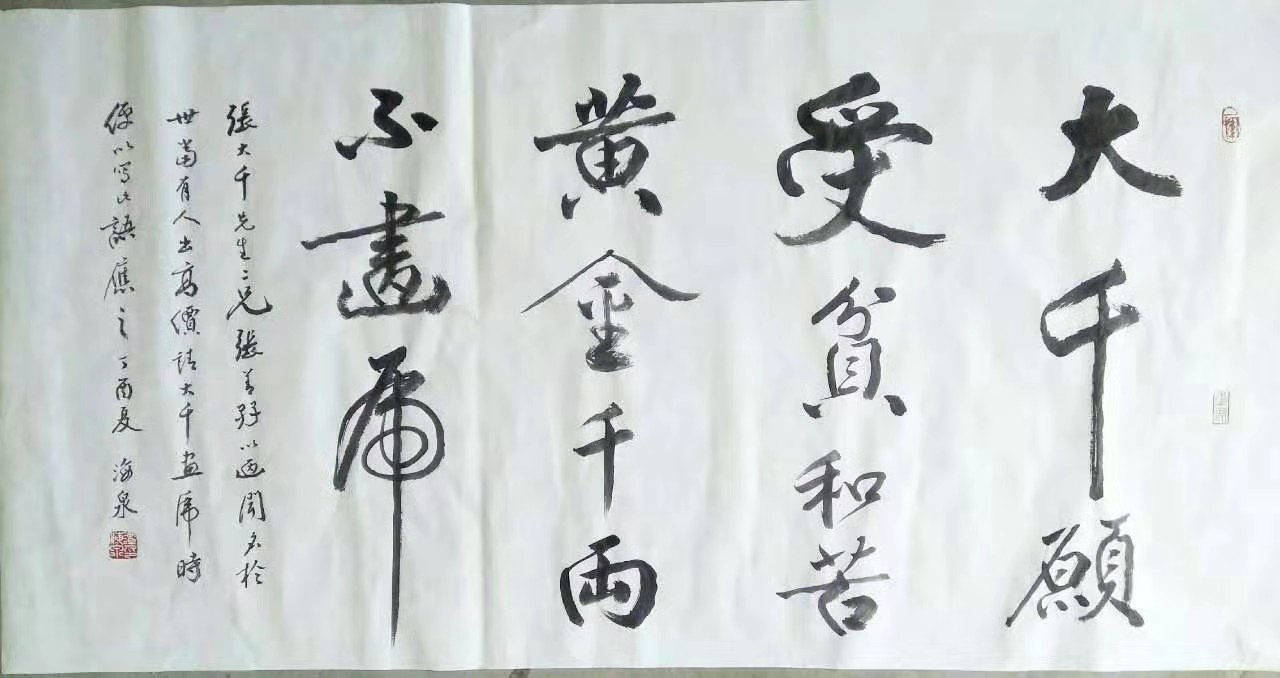 大千願
受貧和苦
黃金千兩
不畫虎
張大千先生二兄張善孖以画聞名於
世當有人出高價請大千画虎時
便以寫此語應之丁酉夏 海泉